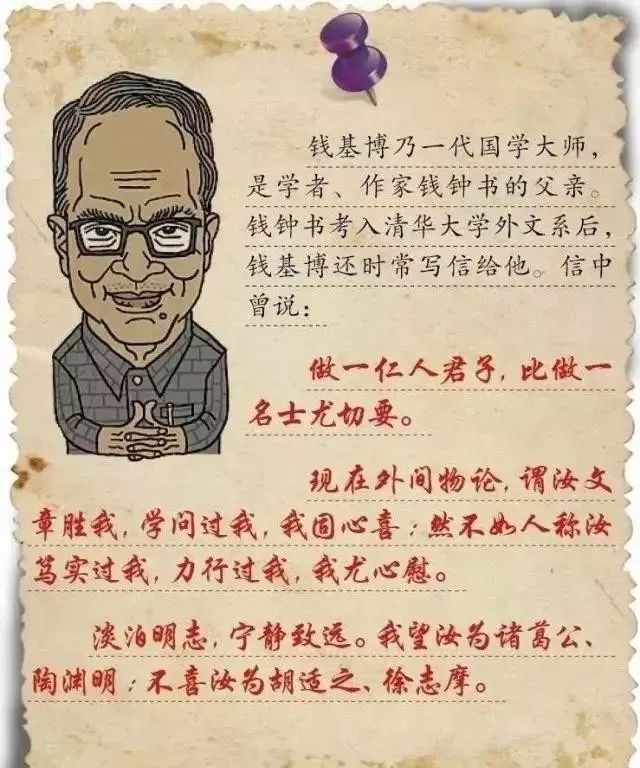 钱基博乃一代国学大师，
是学者、作家钱钟书的父亲。
钱钟书考入清华大学外文系后，
钱基博还时常写信给他。信中
曾说：
做一仁人君子，比做一
名士尤切要。
现在外间物论，谓汝文
章胜我，学问过我，我固心喜；然不如人称汝
笃实过我，力行过我，我尤心慰。
淡泊明志，宁静致远。我望汝为诸葛公、
陶渊明；不喜汝为胡适之、徐志摩。